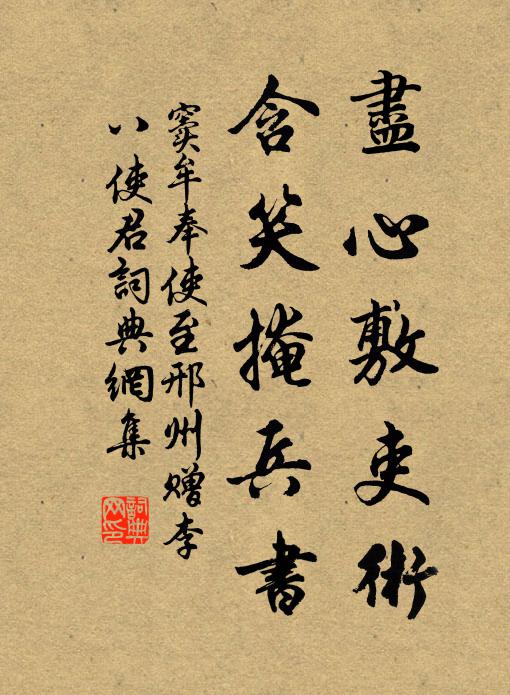 盡心敷吏術
含笑掩兵書
竇牟奉使至邢州赠李
八使君詞典網集
詞典
网印